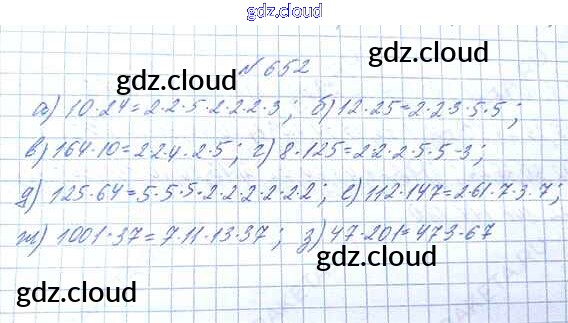 gdz.cloud
gdz.cloud
№ 652
а) 10·24=2·2·5·2·2·2·3; б) 12·25=2·2·3·5·5;
gdz.cloud
в) 164·10=2·2·4·2·5; г) 8·125=2·2·2·5·5·3;
gdz.cloud
д) 125·64=5·5·5·2·2·2·2·2·2; е) 112·147=2·61·7·3·7;
ж) 1001·37=7·11·13·37; з) 47·201=473·67
gdz.cloud
gdz.cloud